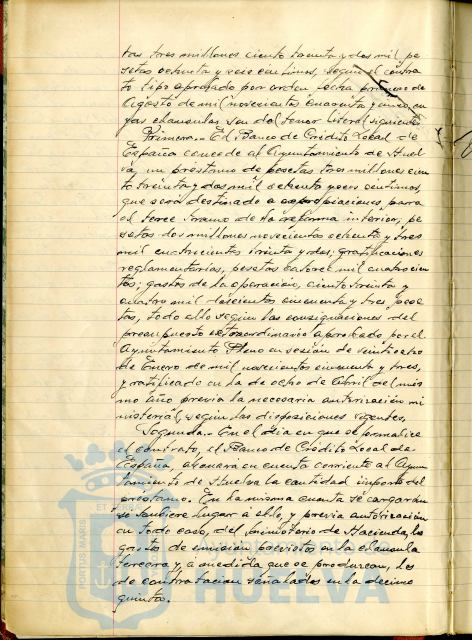 tas tres millones ciento treinta y dos mil pe
setas ochenta y seis centimos, según el contra
to tipo aprobado por orden fecha primero de
Agosto de mil novecientos cuarenta y cinco, cu
yas clausulas son del tenor literal siguiente:
Primera.- El Banco de Crédito Local de
España concede al Ayuntamiento de Huel
va, un prestamo de pesetas tres millones cien
to treinta y dos mil ochenta y seis centimos,
que será destinado a expropiaciones para
el tercer tramo de la reforma interior, pe
setas dos millones novecientas ochenta y tres
mil trescientas treinta y dos; gratificaciones
reglamentarias, pesetas catorce mil cuatrocien
tas; gastos de la operación, ciento treinta y
cuatro mil doscientas cincuenta y tres, pese
tas, todo ello según las consignaciones del
presupuesto extraordinario aprobado por el
Ayuntamiento Pleno en sesión de veinticatro
de Enero de mil novecientos cincuenta y tres,
y ratificado en la de ocho de Abril del mis
mo año previa la necesaria autorización mi
nisterial, según las disposiciones vigentes.
Segunda.- En el día en que se formalice
el contrato, el Banco de Crédito Local de
España, abonara en cuenta corriente al Ayun
tamiento de Huelva la cantidad importe del
prestamo. En la misma cuenta se cargarán
se hubiere lugar a ello, y previa autorización
en todo caso, del ministerio de Hacienda, los
gastos de emisión previstos en la clausula
tercera y, a medida que se produzcan, los
de contratacion señalados en la decimo
quinta.
PORTUS MARIS
ET TERRAE
HUELVA